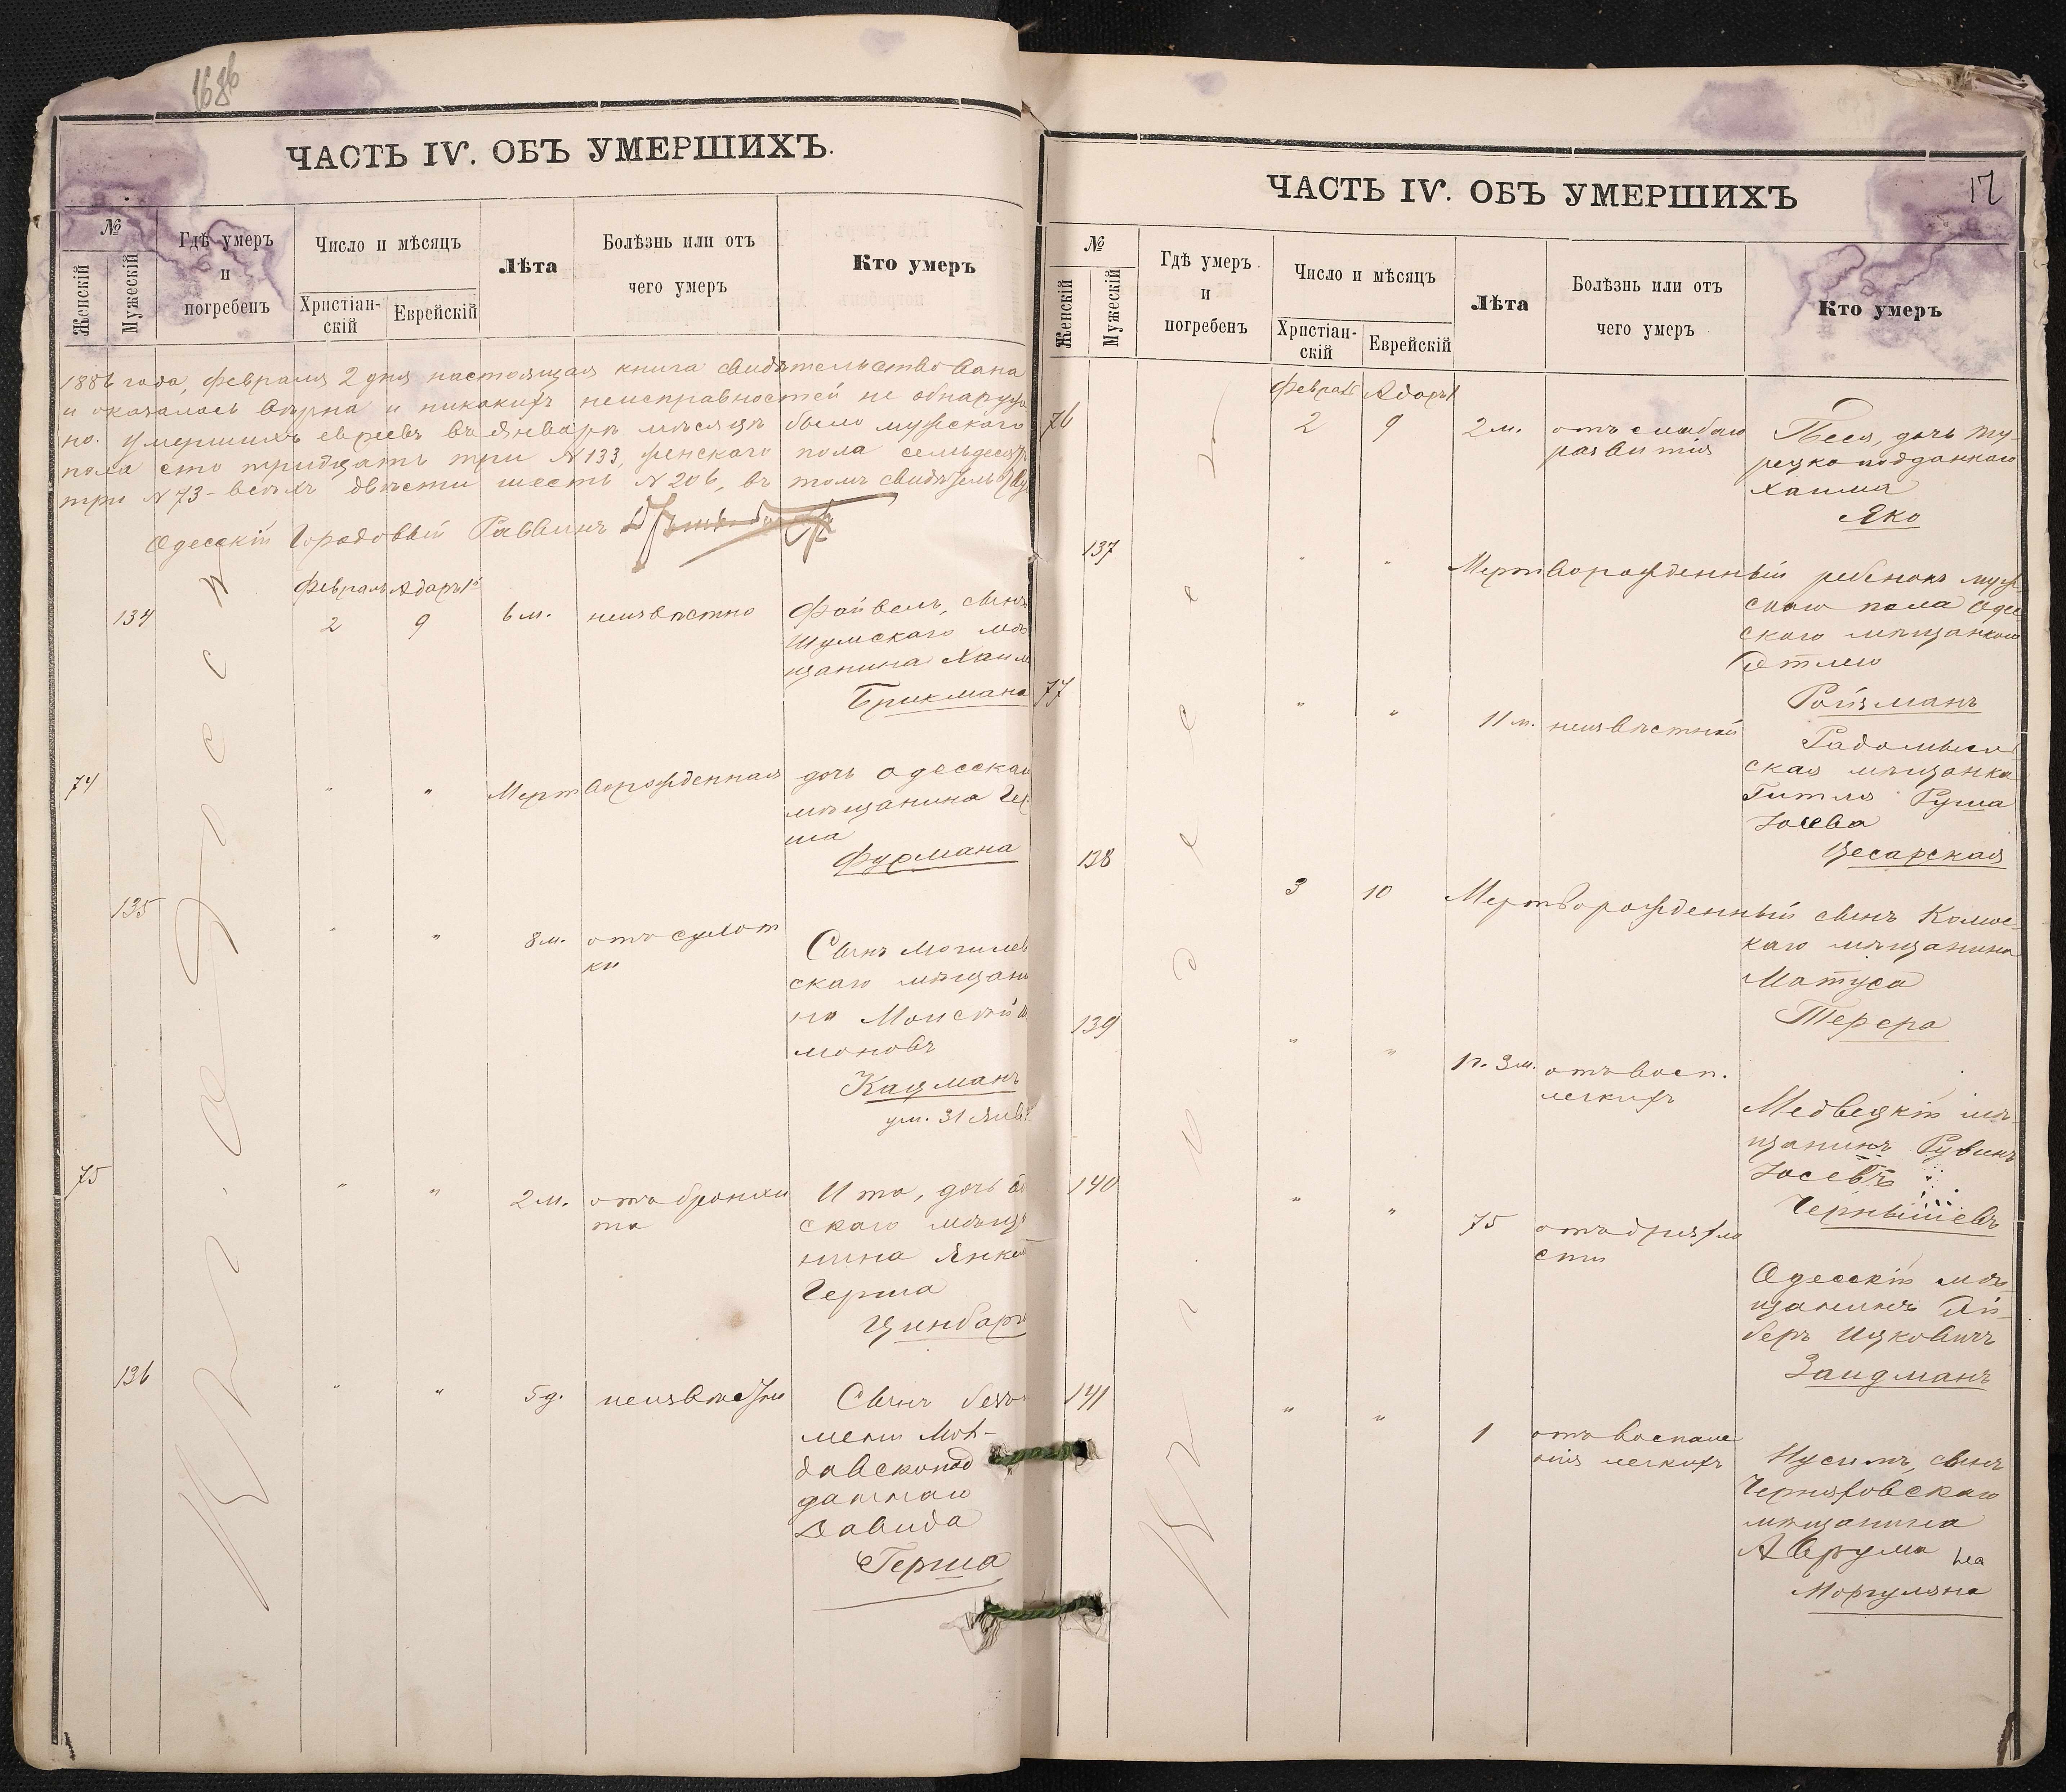 1686
ЧАСТЬ IV. ОБЪ УМЕРШИХЪ.
№
Женскій
Мужескій
Гдѣ умеръ
и
погребенъ
Число и мѣсяцъ
Христіан-
скій
Еврейскій
Лѣта
Болѣзнь или отъ
чего умеръ
Кто умеръ
1886 года, февраля 2 дня настоящая книга свидѣтельствована
и оказалась вѣрна и никакихъ неисправностей не обнаруже
но. Умершихъ евреевъ въ Январѣ мѣсяцѣ было мужскаго
пола сто тридцать три N 133, женскаго пола семьдесятъ
три N 73 - всѣхъ двѣсти шесть N 206, въ томъ
Одесскій Городовый Раввинъ
Февраль Адаръ 1й
134 2 9 6 м. неизвѣстно Файвель, сынъ
Шумскаго мѣ
щанина Хаим
Брикмана
74 " " Мертворожденная дочь одесскаго
мѣщанина Гер
ша
Фурмана
135 " " 8 м. отъ сухот
ки
Сынъ Могилев
скаго мѣщани
на
моновъ
Кацманъ
ум. 31 Янв.
75 " " 2 м. отъ бронхи
та
Ита, дочь
скаго мѣщ
нина Янке
Герша
Цинбар
136 " " 5 д. неизвѣстно Сынъ безъ
мени Мол-
давскопод
даннаго
Давида
Герша
Одесса
ЧАСТЬ IV. ОБЪ УМЕРШИХЪ
17
№
Женскій
Мужескій
Гдѣ умеръ
и
погребенъ
Число и мѣсяцъ
Христіан-
скій
Еврейскій
Лѣта
Болѣзнь или отъ
чего умеръ
Кто умеръ
Февраль Адаръ 1
76 2 9 2 м. отъ слабаго
развитія
Песя, дочь ту-
рецкоподданнаго
Хаима
Яко
137 " " Мертворожденный ребенокъ муж
скаго пола Одес
скаго мѣщанина
Ройзманъ
77 " " 11 м. неизвѣстной
Радомысль
ская мѣщанка
Гитля Руша
Іосева
Цесарская
138 3 10 Мертворожденный сынъ
каго мѣщанина
Матуса
Терера
139 " " 1 г. 3 м. отъ восп.
легкихъ
Медвецкій мѣ-
щанинъ Рувинъ
Іосевъ
Чернышевъ
140 " " 75 отъ дряхло
сти
Одесскій мѣ
щанинъ Ай-
беръ Ицковичъ
Зайдманъ
141 " " 1 отъ воспале
нія легкихъ
Нусимъ, сынъ
Черняховскаго
мѣщанина
Аврума
Моргуляна